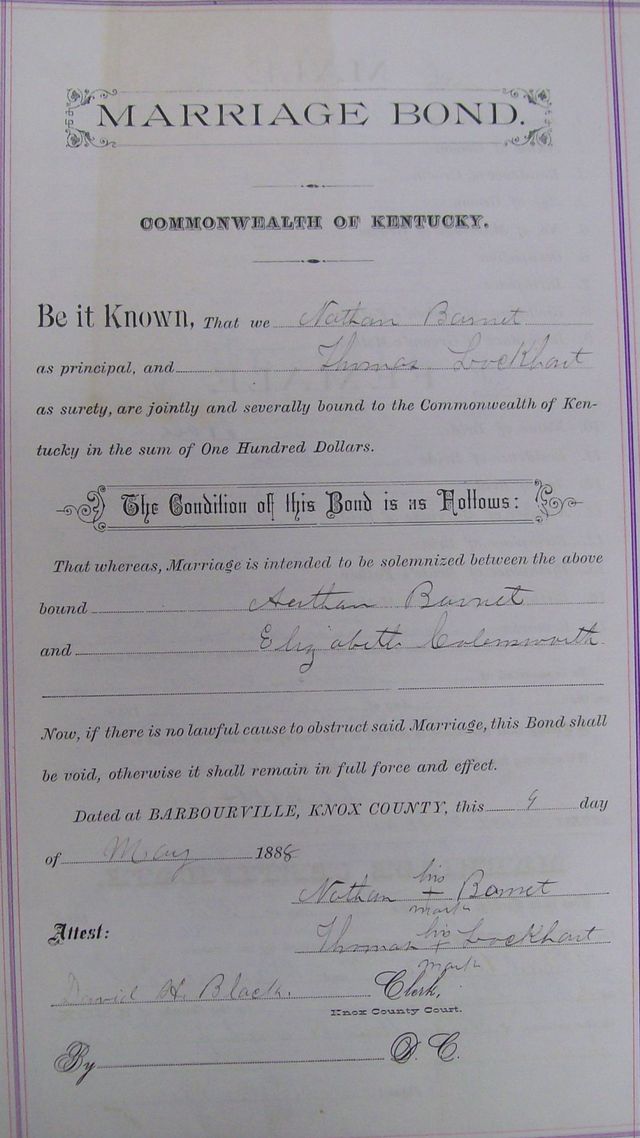 MARRIAGE BOND.
COMMONWEALTH OF KENTUCKY.
Be it Known, That we Nathan Barnet
as principal, and Thomas Lockhart
as surety, are jointly and severally bound to the Commonwealth of Ken-
tucky in the sum of One Hundred Dollars.
The Condition of this Bond is as Follows:
That whereas, Marriage is intended to be solemnized between the above
bound Nathan Barnet
and Elizabeth
Now, if there is no lawful cause to obstruct said Marriage, this Bond shall
be void, otherwise it shall remain in full force and effect.
Dated at BARBOURVILLE, KNOX COUNTY, this 9 day
of May 1888
Nathan his + mark Barnet
Attest:
Thomas his + mark Lockhart
David H. Black. Clerk,
Knox County Court.
By D. C.